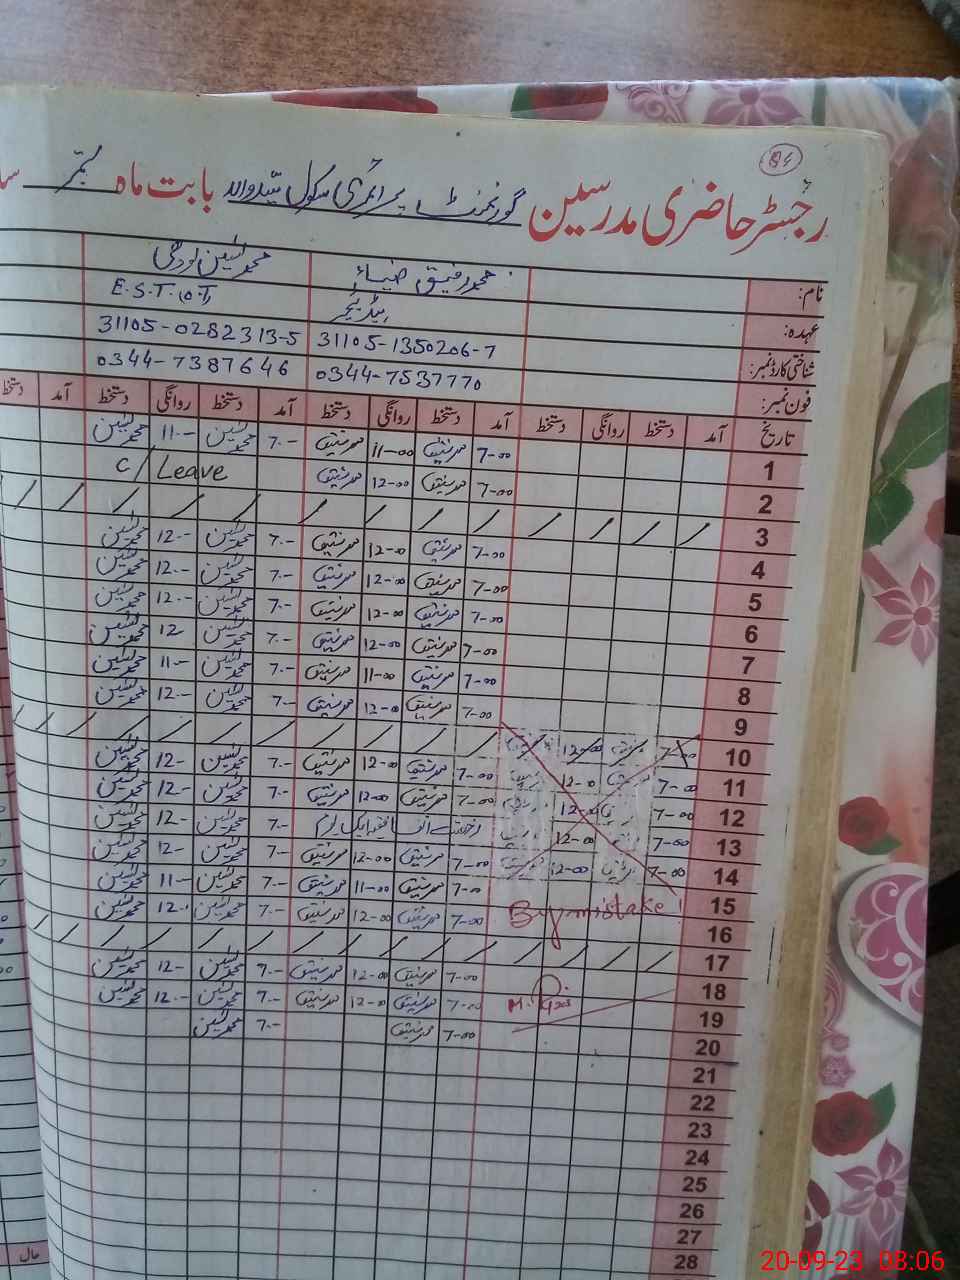 84
رجسٹر حاضری مدرسین گورنمنٹ پرائمری سکول بابت ماہ ستمبر
نام: محمد رفیق ضیاء محمد یٰسین لودھی
عہدہ: ہیڈ ٹیچر E.S.T
شناختی کارڈ نمبر: 31105-1350206-7 31105-0282313-5
فون نمبر: 0344-7537770 0344-7387646
تاریخ آمد دستخط روانگی دستخط آمد دستخط روانگی دستخط آمد دستخط روانگی دستخط آمد دستخط
1 7-00 محمد رفیق 11-00 محمد رفیق 7.- محمد یٰسین 11.- محمد یٰسین
2 7-00 محمد رفیق 12-00 محمد رفیق C/Leave
3
4 7-00 محمد رفیق 12-00 محمد رفیق 7.- محمد یٰسین 12.- محمد یٰسین
5 7-00 محمد رفیق 12-00 محمد رفیق 7.- محمد یٰسین 12.- محمد یٰسین
6 7-00 محمد رفیق 12-00 محمد رفیق 7.- محمد یٰسین 12.- محمد یٰسین
7 7-00 محمد رفیق 12-00 محمد رفیق 7.- محمد یٰسین 12- محمد یٰسین
8 7-00 محمد رفیق 11-00 محمد رفیق 7.- محمد یٰسین 11.- محمد یٰسین
9 7-00 محمد رفیق 12-00 محمد رفیق 7.- محمد یٰسین 12.- محمد یٰسین
10 7-00 12-00
11 7-00 12-0 7-00 محمد رفیق 12-00 محمد رفیق 7.- محمد یٰسین 12- محمد یٰسین
12 7-00 12-00 7-00 محمد رفیق 12-00 محمد رفیق 7.- محمد یٰسین 12.- محمد یٰسین
13 7-00 12-00 رخصت اتفاقیہ ایک یوم 7.- محمد یٰسین 12- محمد یٰسین
14 7-00 12-00 7-00 محمد رفیق 12-00 محمد رفیق 7.- محمد یٰسین 12- محمد یٰسین
15 By mistake! 7-00 محمد رفیق 11-00 محمد رفیق 7.- محمد یٰسین 11.- محمد یٰسین
16 7-00 محمد رفیق 12-00 محمد رفیق 7.- محمد یٰسین 12.- محمد یٰسین
17
18 7-00 محمد رفیق 12-00 محمد رفیق 7.- محمد یٰسین 12- محمد یٰسین
19 7-00 محمد رفیق 12-00 محمد رفیق 7.- محمد یٰسین 12.- محمد یٰسین
20 7-00 محمد رفیق 7.- محمد یٰسین
21
22
23
24
25
26
27
28
20-09-23 08:06